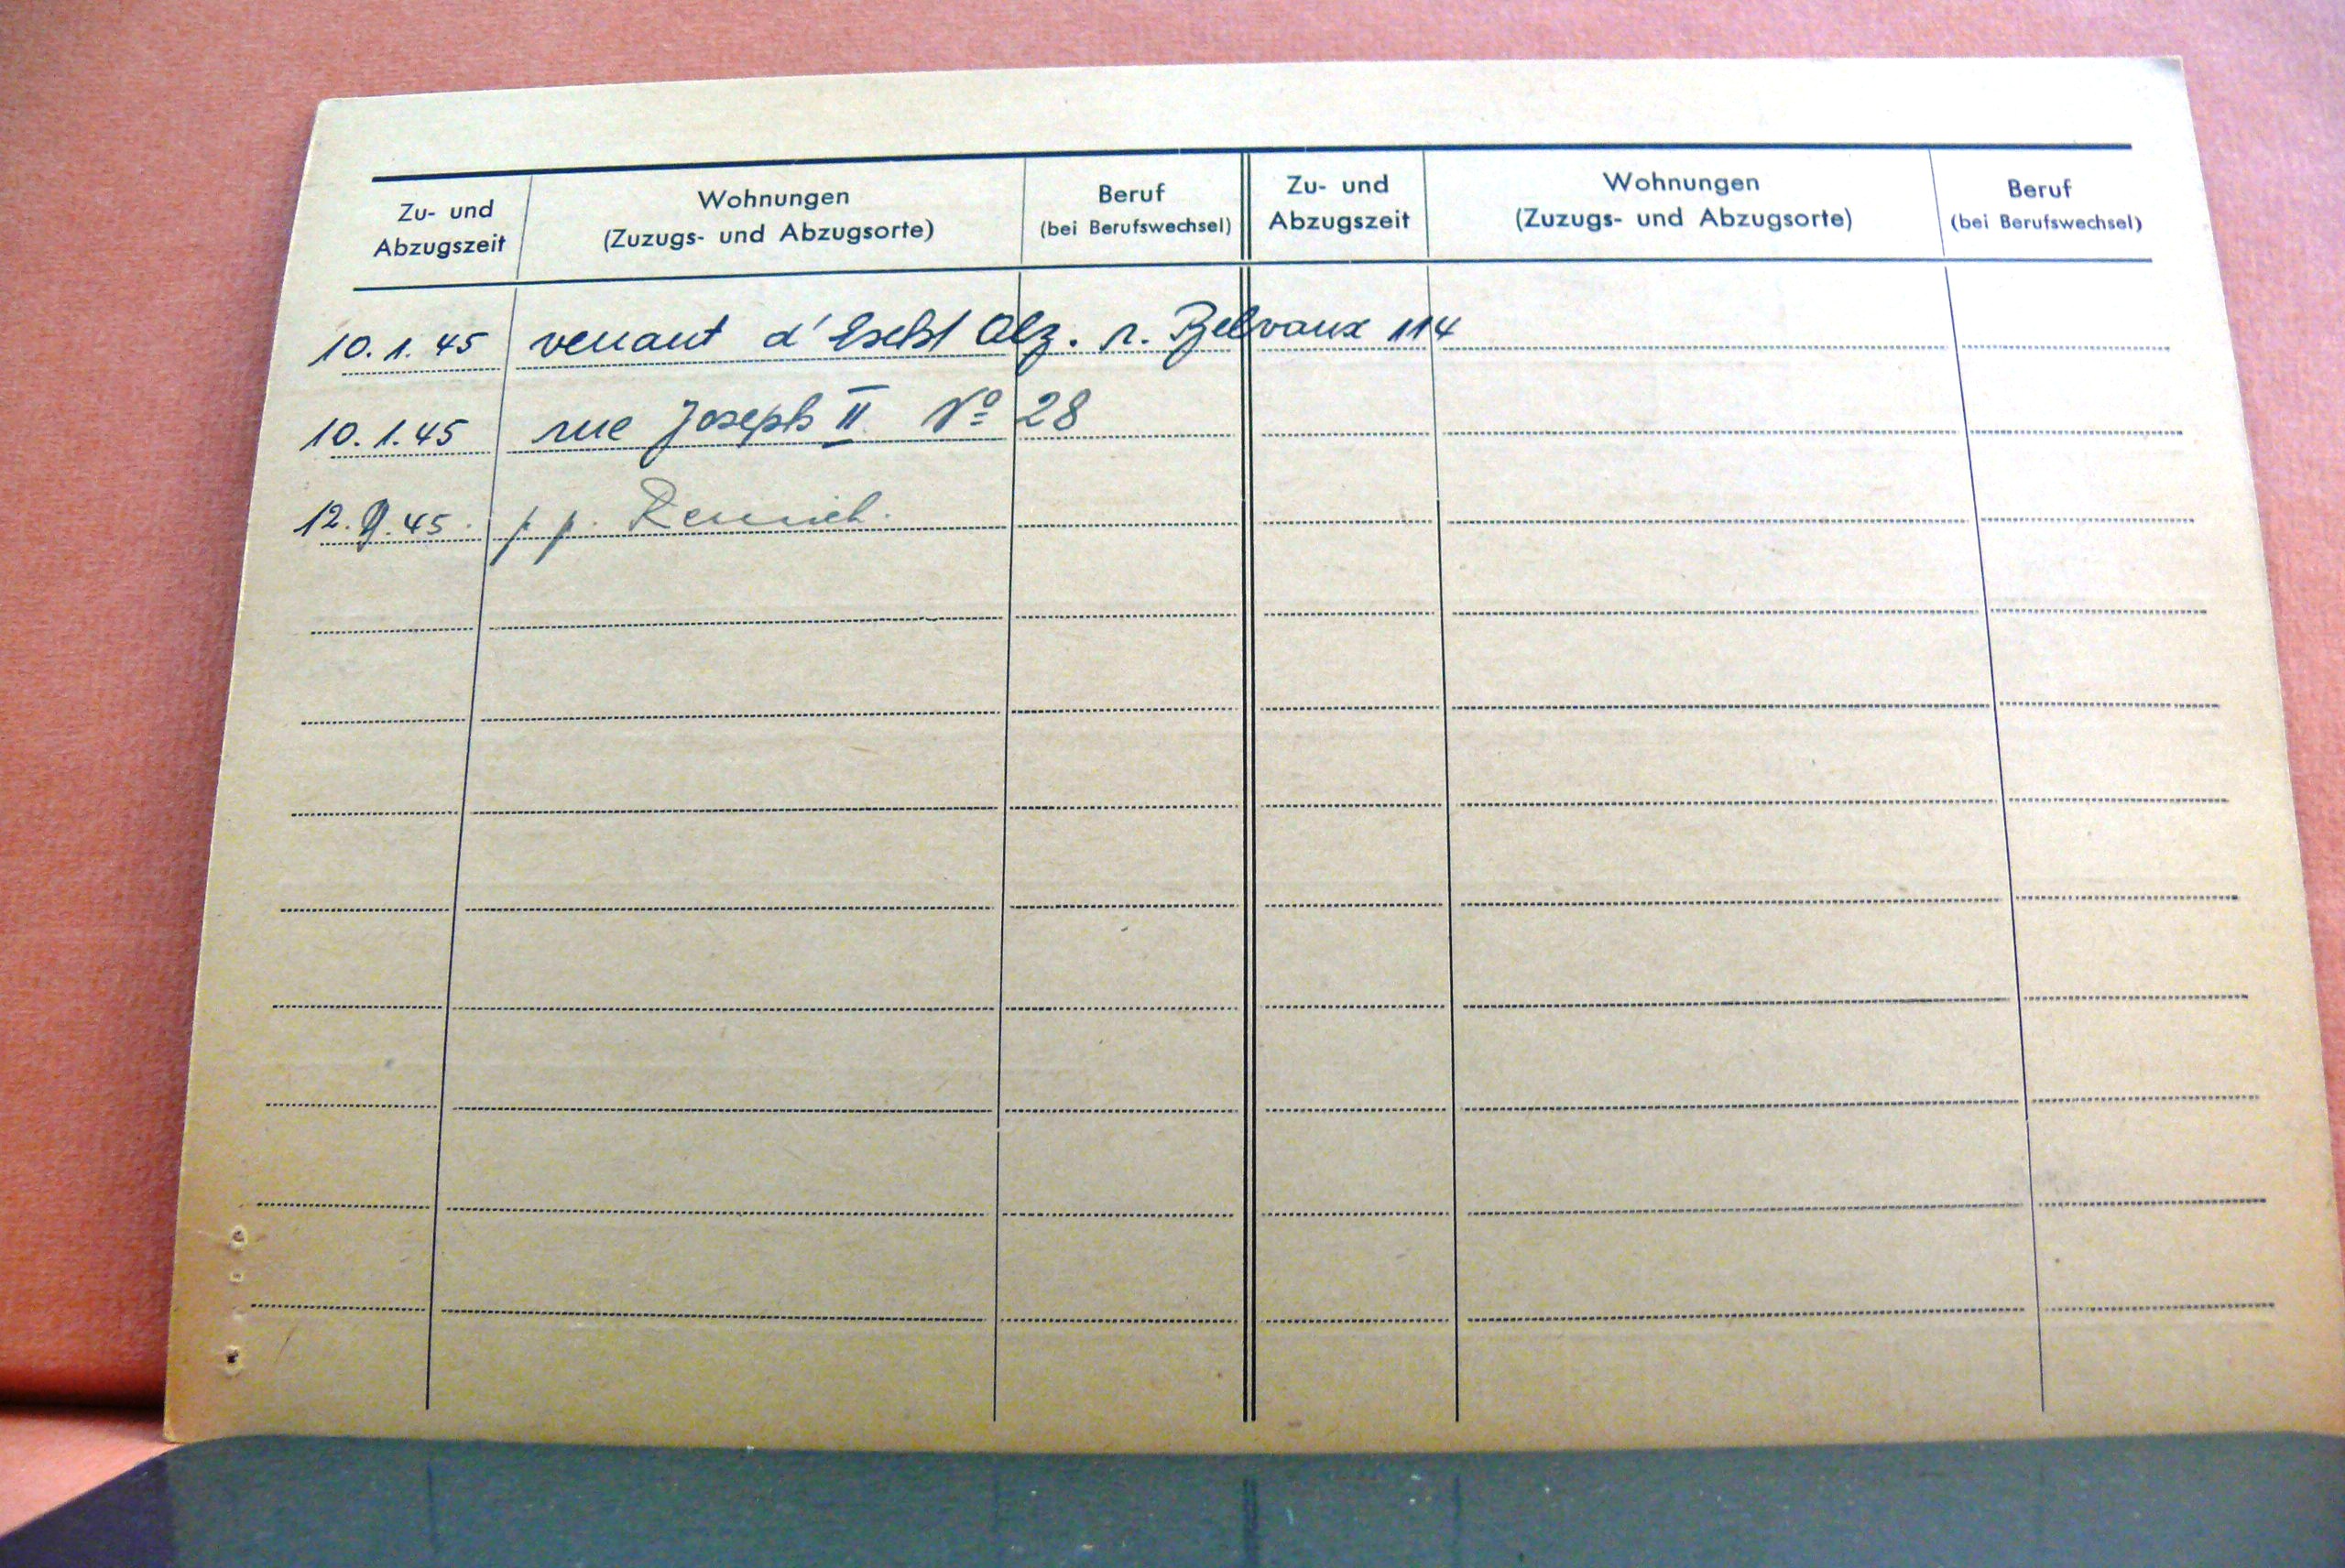 Zu- und Abzugszeit
Wohnungen (Zuzugs- und Abzugsorte)
Beruf (bei Berufswechsel)
Zu- und Abzugszeit
Wohnungen (Zuzugs- und Abzugsorte)
Beruf (bei Berufswechsel)
10.1.45 venant d'Esch Alz. r. Belvaux 114
10.1.45 rue Joseph II Nº 28
12.9.45. p. p. Remich.